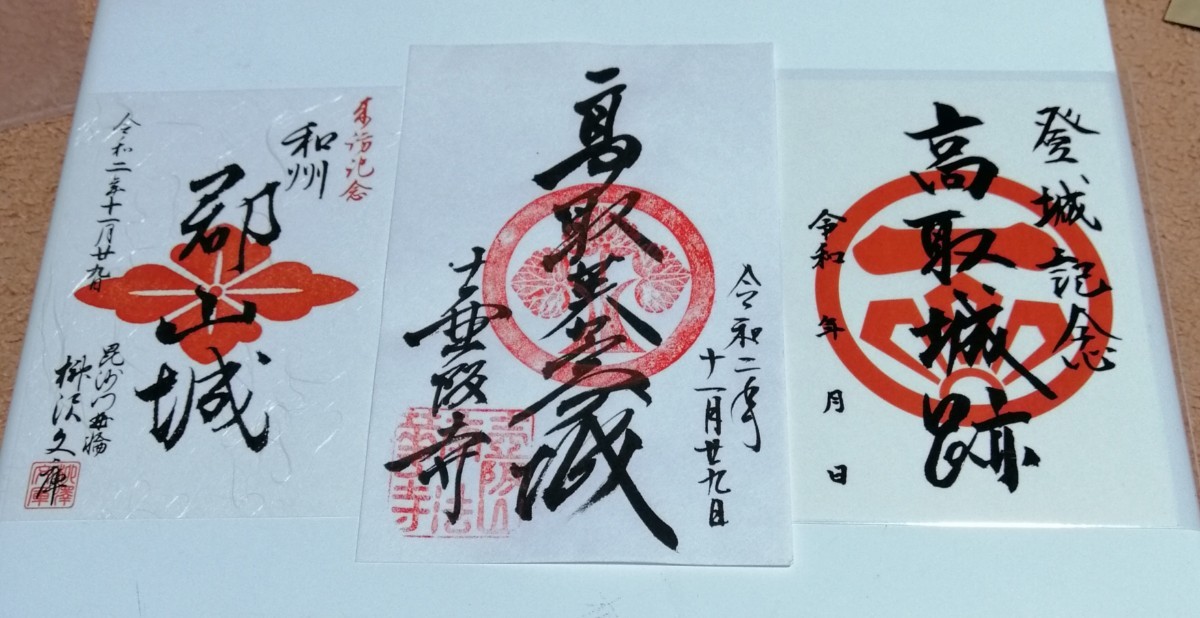 来訪記念
和州
郡山城
令和二年十一月廿九日
毘沙門曲輪
柳沢文庫
柳澤文庫
令和二年
十一月廿九日
高取芙蓉城
壷阪寺
登城記念
高取城跡
令和 年 月 日